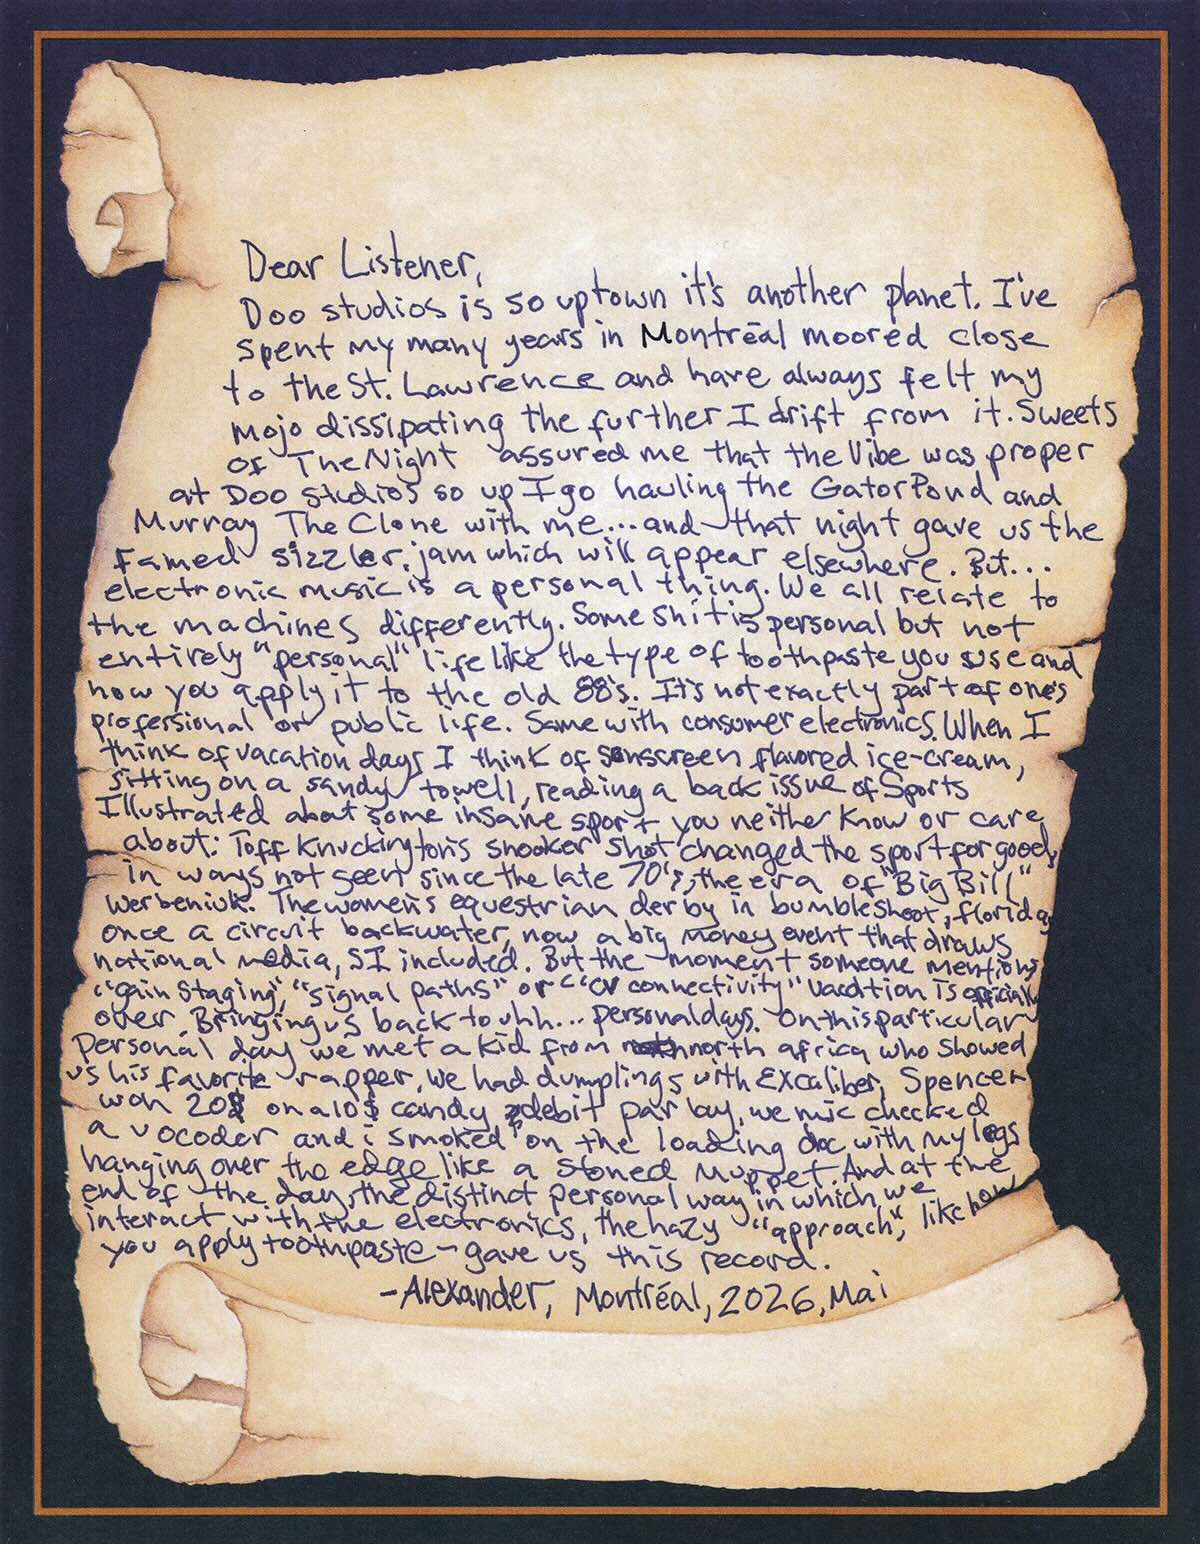 Dear Listener,
Doo studios is so uptown it's another planet. I've
spent my many years in Montréal moored close
to the St. Lawrence and have always felt my
mojo dissipating the further I drift from it. Sweets
Of The Night assured me that the Vibe was proper
at Doo studios so up I go hauling the GatorPond and
Murray The Clone with me... and that night gave us the
famed sizzler jam which will appear elsewhere. But...
electronic music is a personal thing. We all relate to
the machines differently. Some shit is personal but not
entirely "personal" life like the type of toothpaste you use and
how you apply it to the old 88's. It's not exactly part of one's
professional or public life. Same with consumer electronics. When I
think of vacation days I think of sunscreen flavored ice-cream,
sitting on a sandy towell, reading a back issue of Sports
Illustrated about some insane sport you neither know or care
about: Toff Knuckington's snooker shot changed the sport for good,
in ways not seen since the late 70's, the era of "Big Bill"
Werbeniuk. The women's equestrian derby in bumbleshoot, florida,
once a circuit backwater, now a big money event that draws
national media, SI included. But the moment someone mentions
"gain staging", "signal paths" or "CV connectivity" vacation is officially
over. Bringing us back to uhh... personal days. On this particular
personal day we met a kid from north africa who showed
us his favorite rapper, we had dumplings with Excaliber, Spencer
won 20$ on a 10$ candy debit par lay, we mic checked
a vocoder and i smoked on the loading doc with my legs
hanging over the edge like a stoned muppet. And at the
end of the day, the distinct personal way in which we
interact with the electronics, the hazy "approach", like how
you apply toothpaste - gave us this record.
- Alexander, Montréal, 2026, Mai